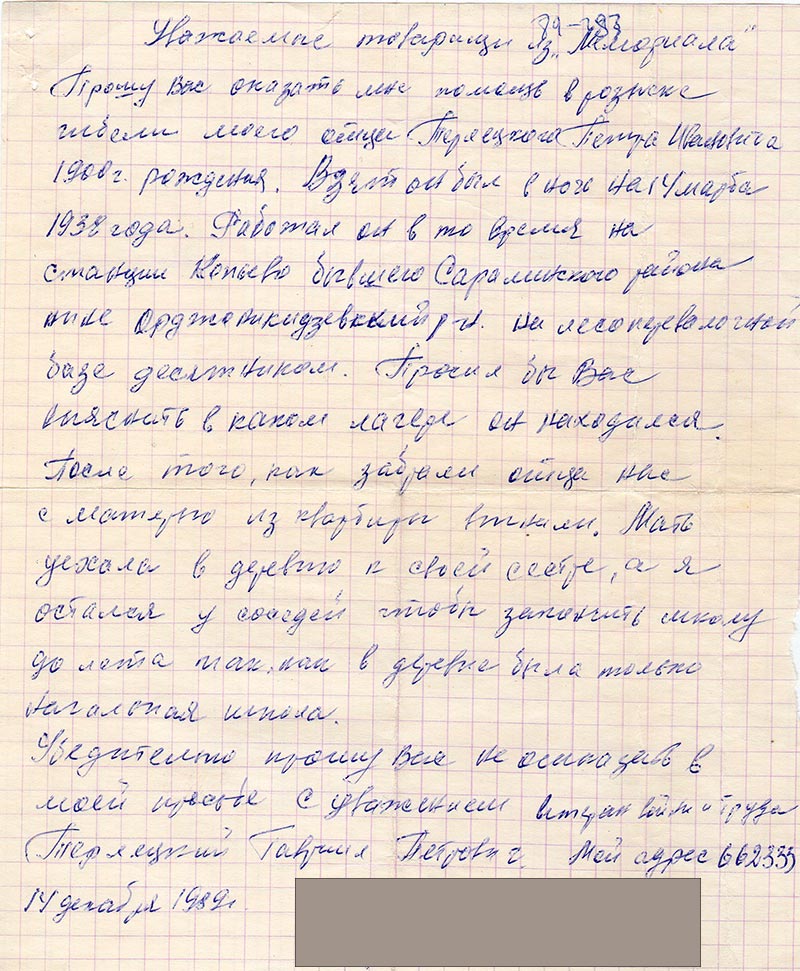 89-793
Уважаемые товарищи из „Мемориала"
Прошу Вас оказать мне помощь в розыске
гибели моего отца Терлецкого Петра Ивановича
1900 г. рождения. Взят он был в ночь на 14 марта
1938 года. Работал он в то время на
станции Копьево бывшего Саралинского района
ныне Орджоникидзевский р-н. на лесоперевалочной
базе десятником. Просил бы Вас
выяснить в каком лагере он находился.
После того, как забрали отца нас
с матерью из квартиры выгнали. Мать
уехала в деревню к своей сестре, а я
остался у соседей чтобы закончить школу
до лета так, как в деревне была только
начальная школа.
Убедительно прошу Вас не отказать в
моей просьбе С уважением ветеран войны и труда
Терлецкий Гавриил Петрович. Мой адрес 662333
14 декабря 1989 г.